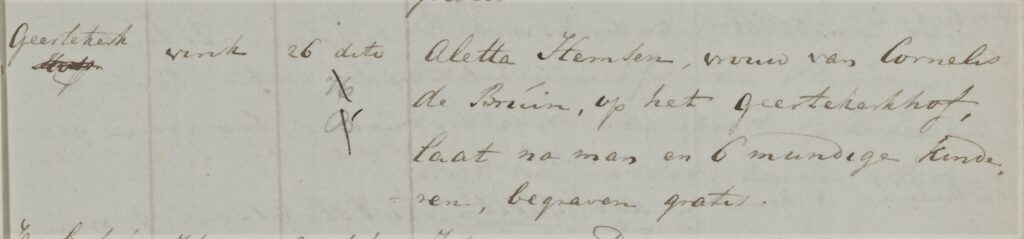 Geertekerk
26 dito
Aletta Hemsen, vrouw van Cornelis
de Bruin, op het geertekerkhof,
laat na man en 6 mundige kinde„
ren, begraven gratis.